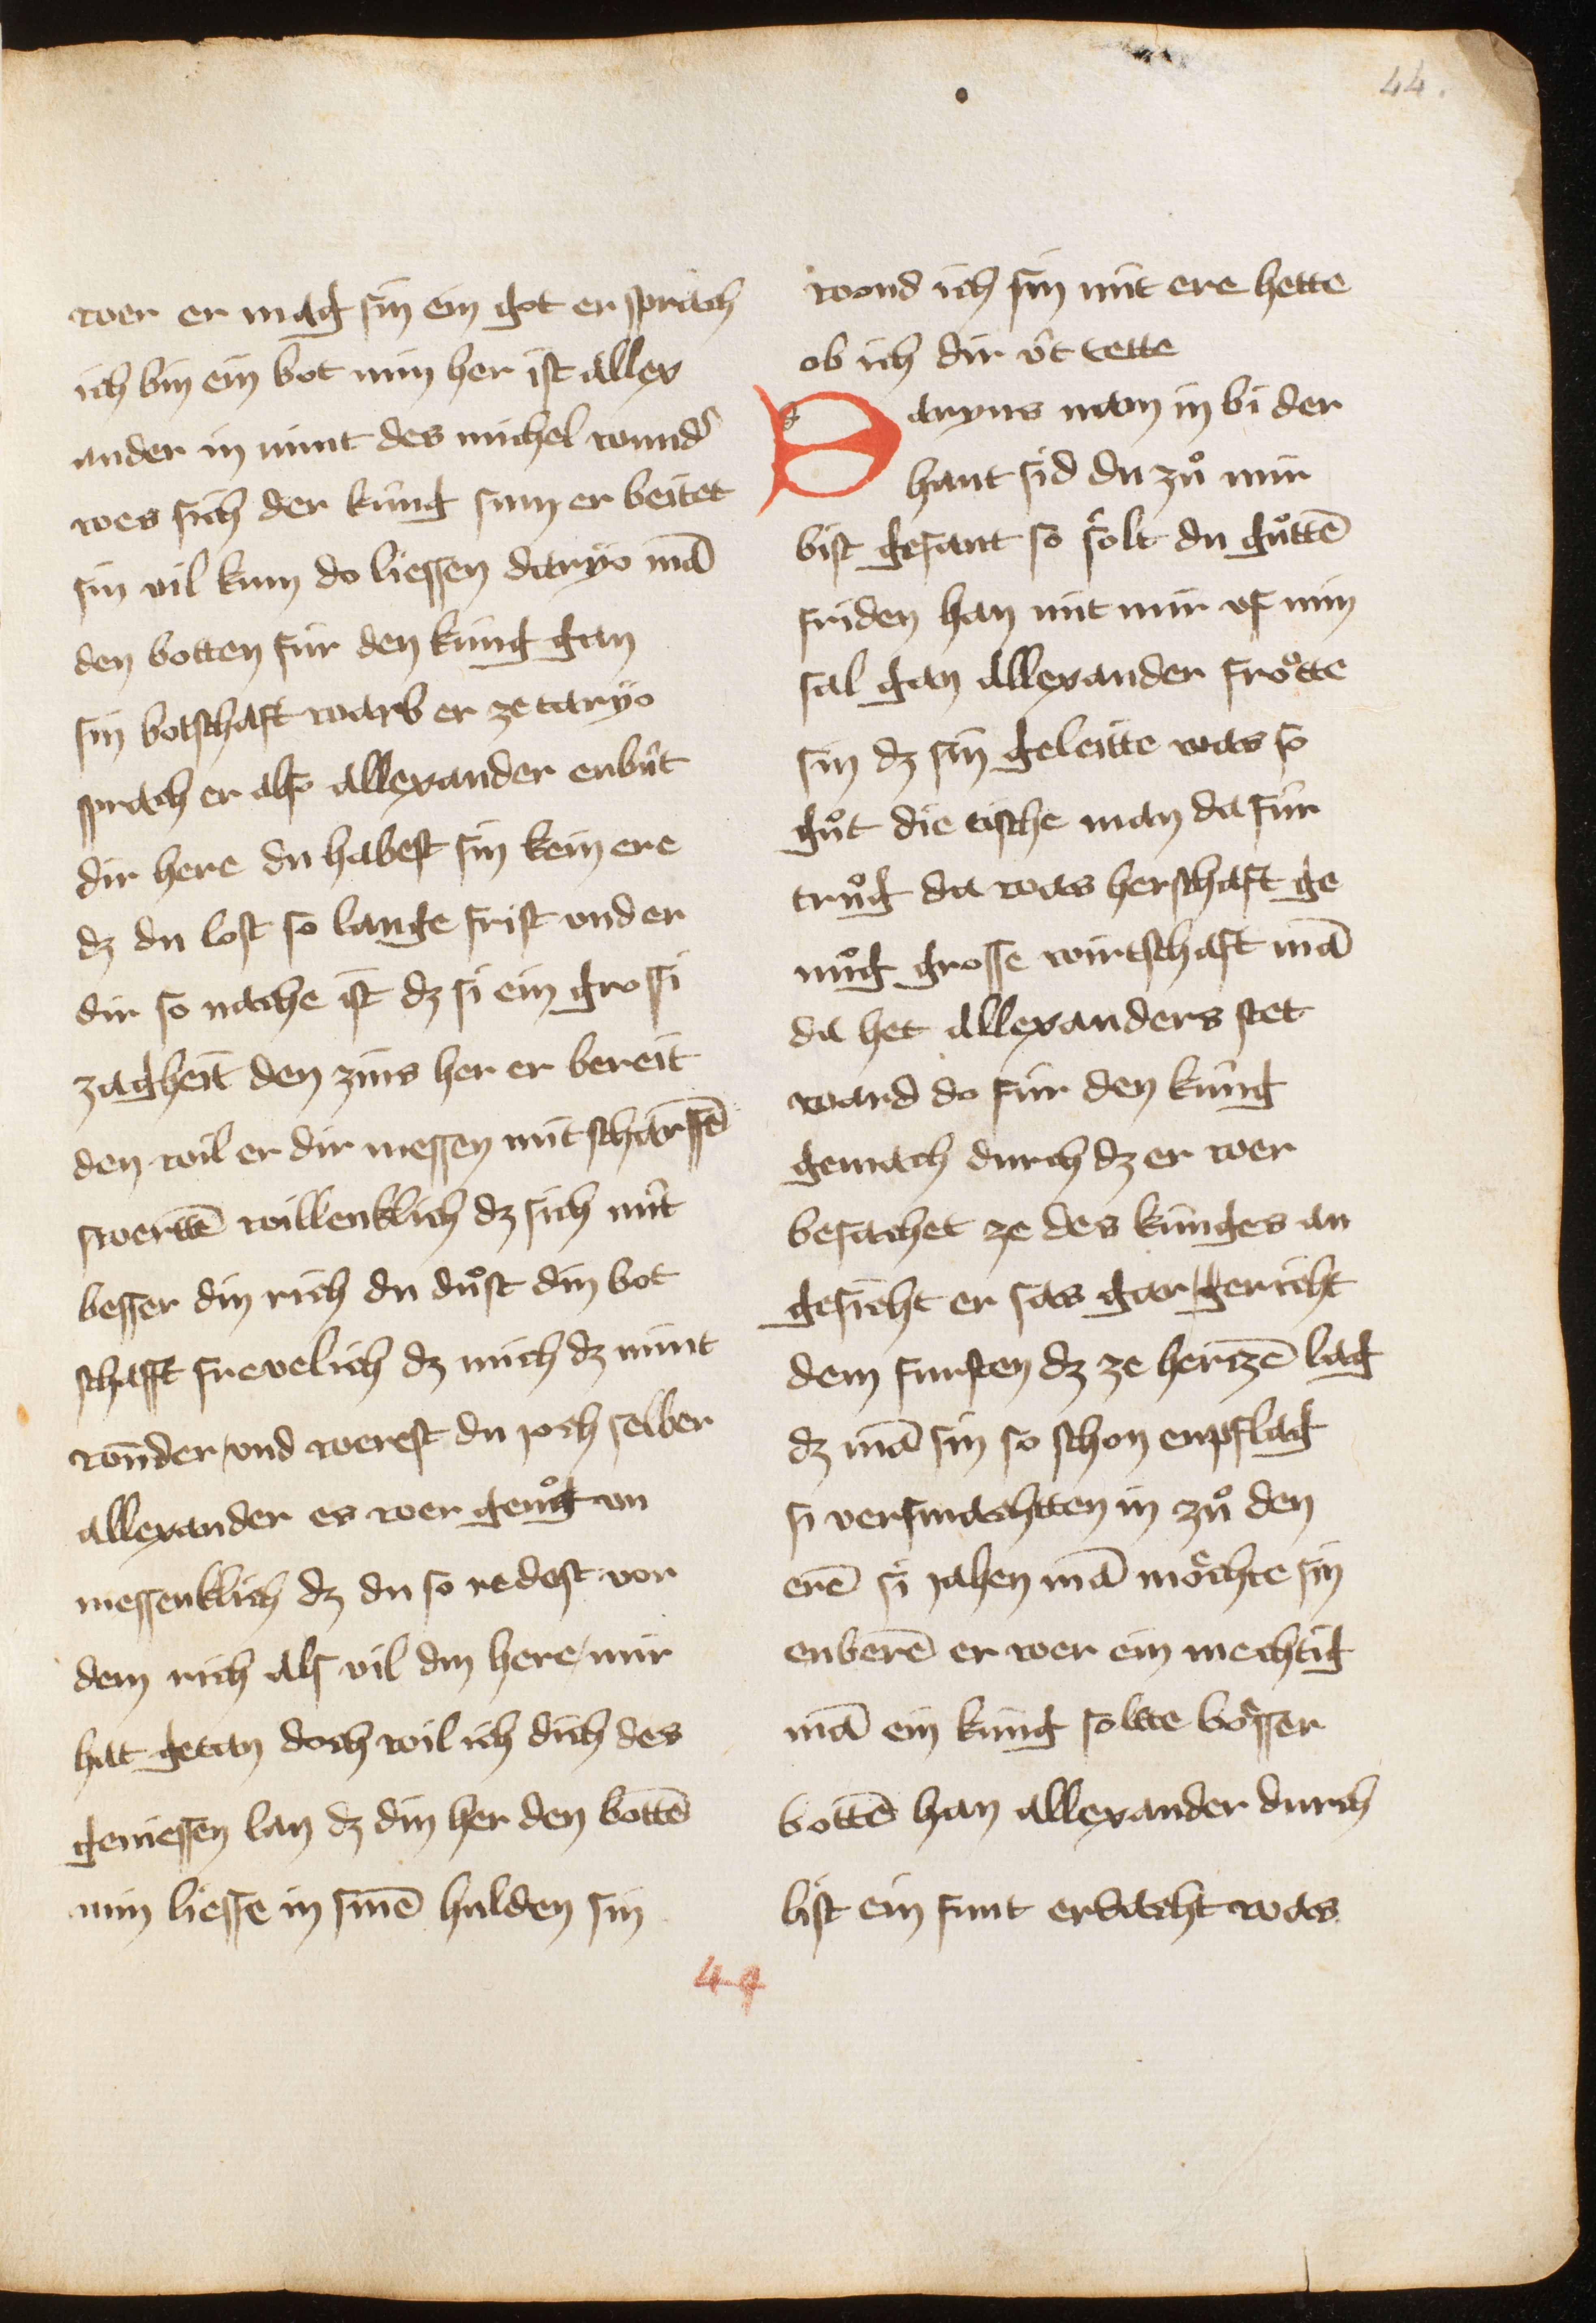 44.
wer er mag sin ein got er sprach
ich bin ein bot min her ist allex
ander in nimt des michel wunds
wes sich der kúng sum er beitet
sin vil kum do liessen daryo mā
den botten fúr den kúng gan
sin botschaft warb er ze taryo
sprach er also allexander enbút
dir here du habest sin kein ere
dz du lost so lange frist und er
dir so nache ist dz si ein grossi
zagheit den zins her er bereit
den wil er dir messen mit scharffē
swertē willenklich dz sich nút
besser din rich du dů̊st din bot
schafft frevelich dz mich dz nimt
wūnder und werest du joch selber
allexander es wer genůg un
messenklich dz du so redost vor
dem rich als vil din here mir
hat getan doch wil ich dich des
geniessen lan dz din her den bottē
min liesse in sinē hulden sin
wond ich sin nút ere hette
ob ich dir út tette
Daryus nam in bi der
hant sid du zů mir
bist gesant so solt du gůttē
friden han mit mir uf min
sal gan allexander frőtte
sin dz sin geleitte was so
gůt die tische man da fúr
trůg da was herschaft ge
nůg grosse wirtschaft mā
da het allexanders stet
ward do fúr den kúng
gemach durch dz er wer
besachet ze des kúnges an
gesicht er sas gar gericht
dem fursten dz ze hertzē lag
dz mā sin so schon enpflag
si versmachtten in zů den
erē si jahen mā mőchte sin
enberē er wer ein mechtig
mā ein kúng solte bősser
bottē han allexander durch
list ein funt erdacht was
44